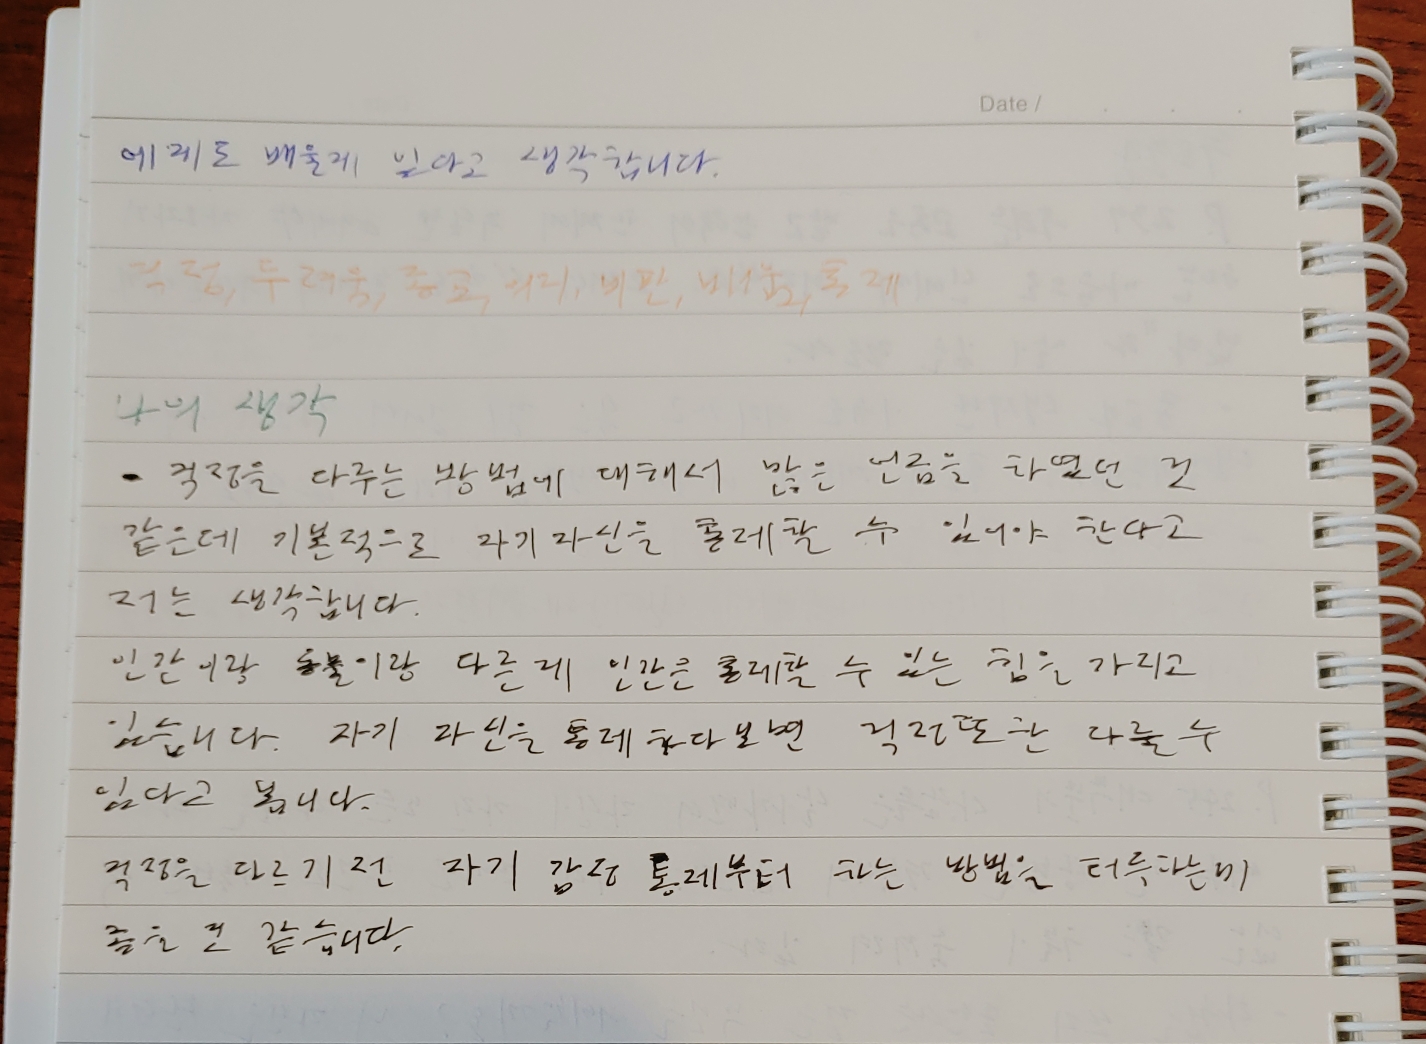 Date /
에게도 배울게 있다고 생각합니다.
걱정, 두려움, 종교, 비판, 통제
나의 생각
- 걱정을 다루는 방법에 대해서 많은 언급을 하였던 것
같은데 기본적으로 자기자신을 통제할 수 있어야 한다고
저는 생각합니다.
인간이랑 동물이랑 다른게 인간은 통제할 수 있는 힘을 가지고
있습니다. 자기 자신을 통제하다보면 걱정또한 다룰 수
있다고 봅니다.
걱정을 다르기 전 자기 감정 통제부터 하는 방법을 터득하는게
좋을 것 같습니다.